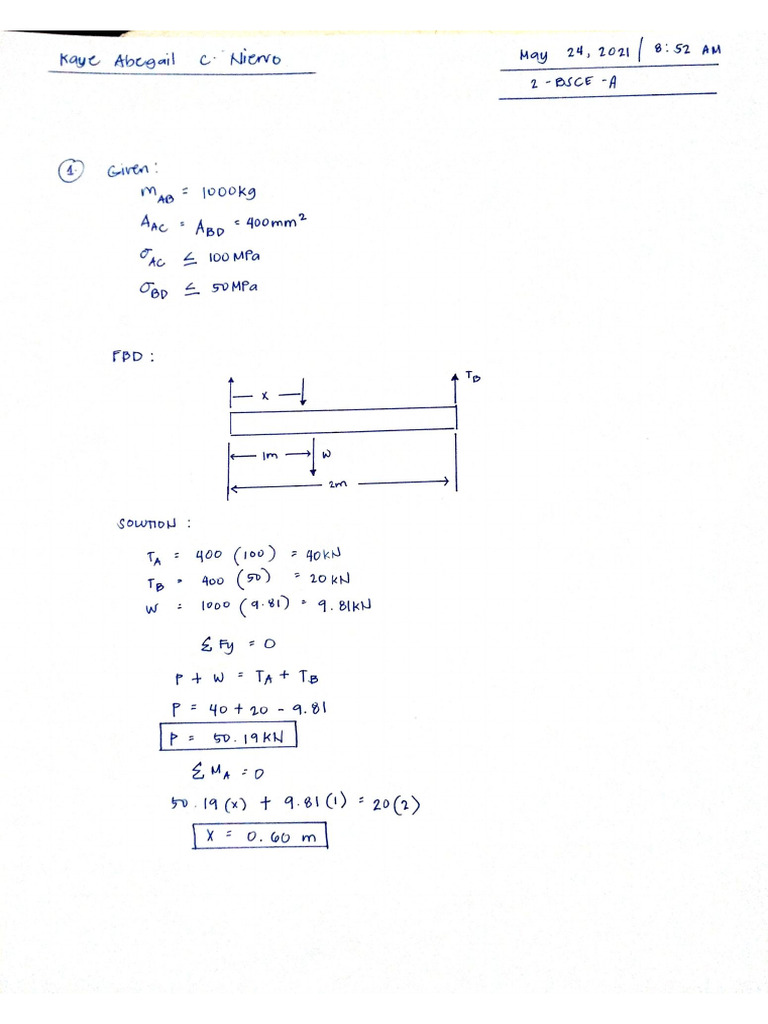 Kaye Abegail C. Niervo
May 24, 2021 / 8:52 AM
2 - BSCE - A
1. Given:
m_AB = 1000kg
A_AC = A_BD = 400mm²
σ_AC ≤ 100 MPa
σ_BD ≤ 50 MPa
FBD:
T_B
x
1m
W
2m
SOLUTION:
T_A = 400 (100) = 40KN
T_B = 400 (50) = 20 KN
W = 1000 (9.81) = 9.81KN
Σ Fy = 0
P + W = T_A + T_B
P = 40 + 20 - 9.81
P = 50.19 KN
Σ M_A = 0
50.19 (x) + 9.81 (1) = 20 (2)
X = 0.60 m